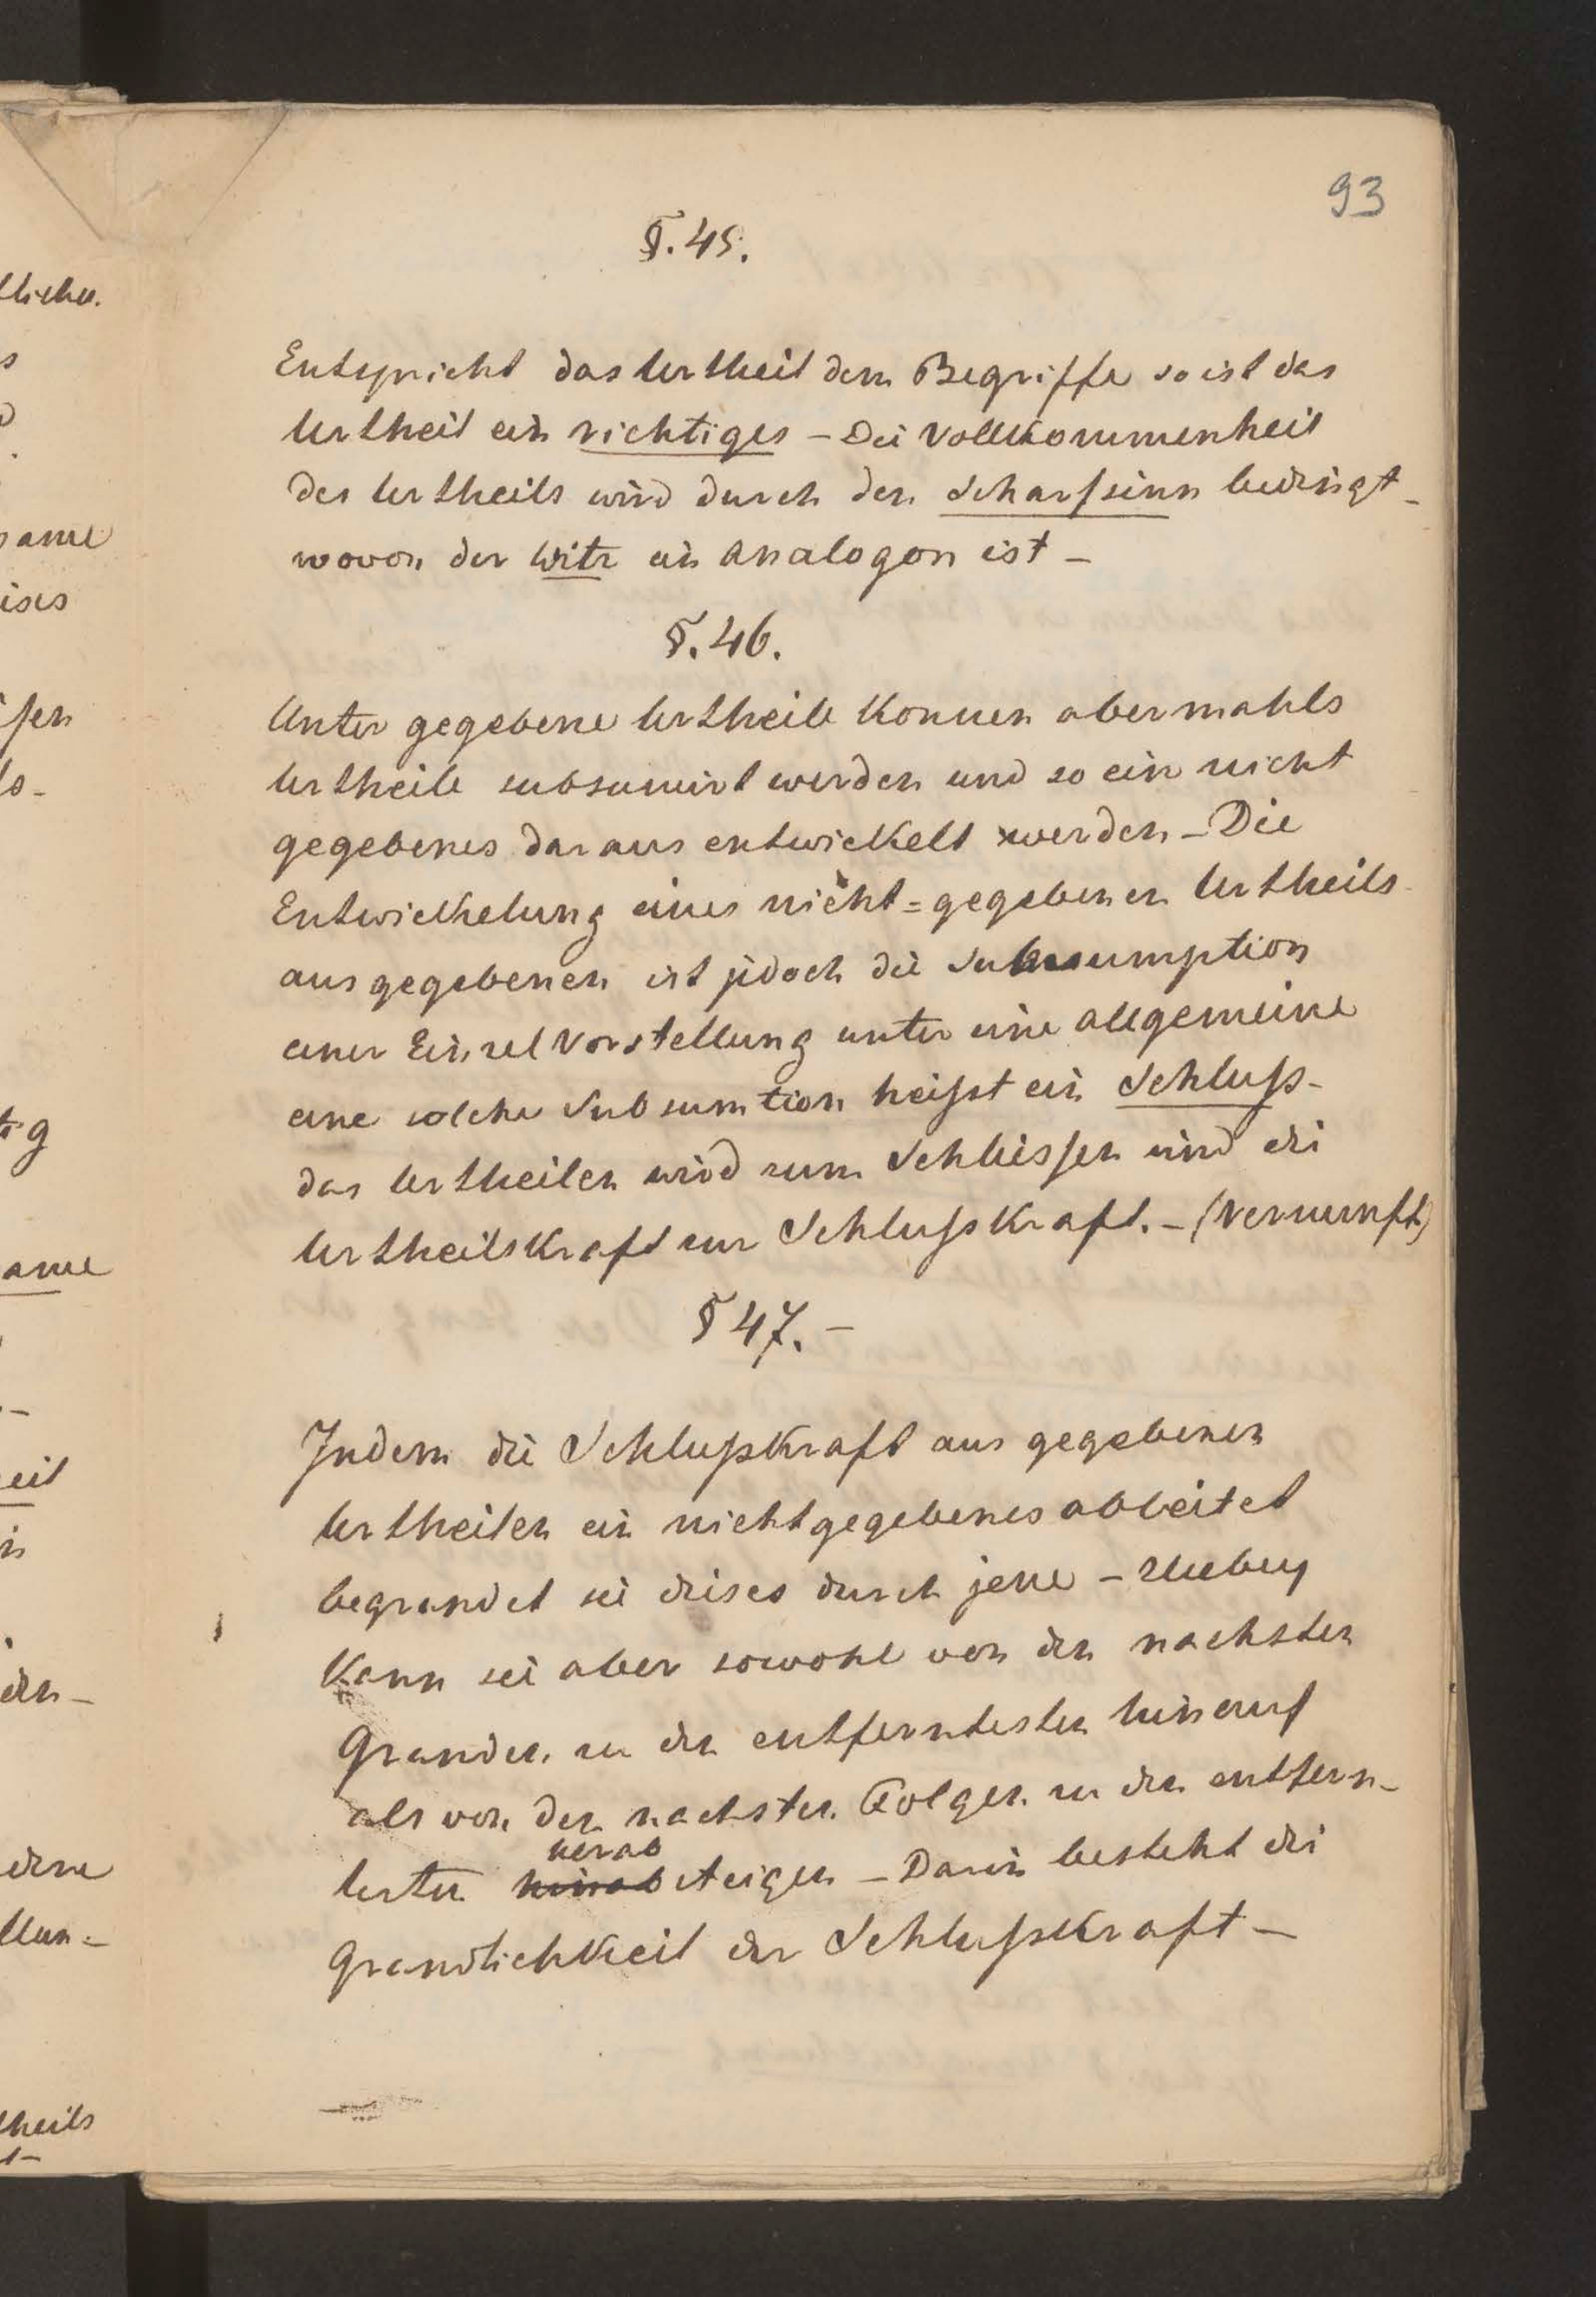 93
§. 45.
Entspricht das Urtheil dem Begriffe so ist das
Urtheil ein richtiges – Die Vollkommenheit
des Urtheils wird durch den Scharfsinn bedingt –
wovon der Witz ein Analogon ist –
§. 46.
Unter gegebene Urtheile konnen abermahls
Urtheile subsumirt werden und so ein nicht
gegebenes daraus entwickelt werden – Die
Entwickelung eines nicht=gegebenen Urtheils
aus gegebenen ist jedoch die Subsumption
einer Einzel Vorstellung unter eine allgemeine
eine solche Subsumtion heißt ein Schluß –
das Urtheilen wird zum Schliessen und die
Urtheilskraft zur Schlußkraft. – (Vernunft)
§ 47. –
Indem die Schlußkraft aus gegebenen
Urtheilen ein nicht gegebenes ableitet
begrundet sie dieses durch jene –
Kann sie aber sowohl von den nachsten
Grunden zu den entferntesten hinauf
als von den nachsten Folgen zu den entfern-
herab
testen hinab steigen – Darin besteht die
Grundlichkeit der Schlußkraft –
tliche.
s
same
ises
ßen
lo-
tig
ame
eit
in
den –
dene
llun=
theils
t –